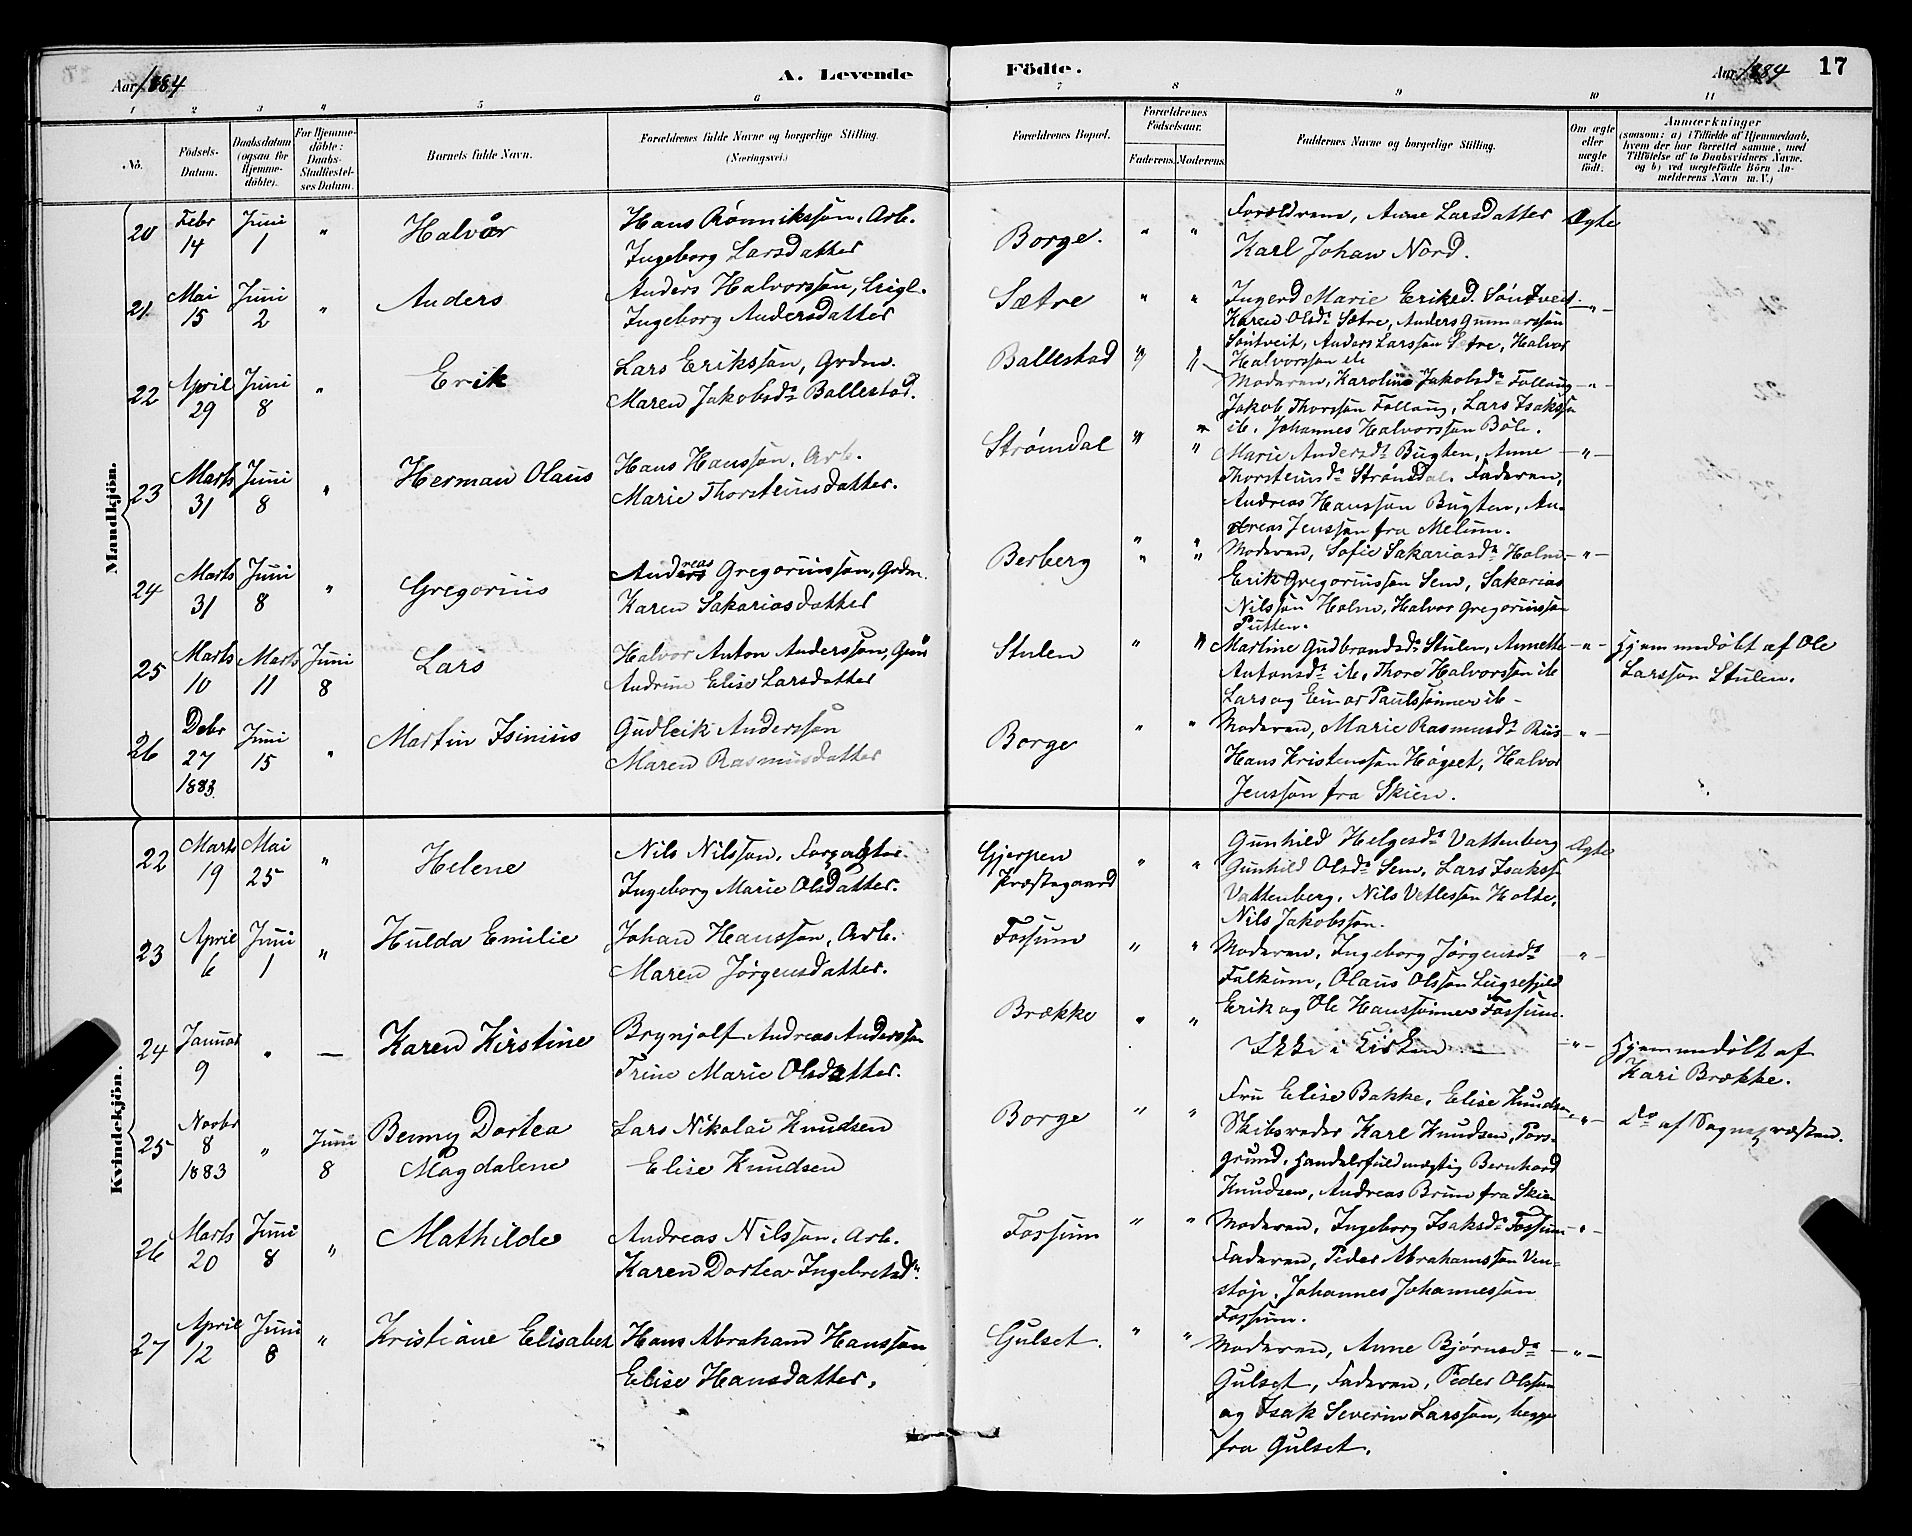 Aar 1884
A. Levende
Födte.
Aar 1884
17
1 2 3 4 5 6 7 8 9 10 11
No.
Födsels-Datum.
Daabsdatum (ogsaa for Hjemme-döbte).
For Hjemme-döbte: Daabs-Stadfæstel-ses Datum.
Barnets fulde Navn.
Forældrenes fulde Navne og borgerlige Stilling. (Næringsvei.)
Forældrenes Bopæl.
Forældrenes Födselsaar.
Faderens. Moderens.
Faddernes Navne og borgerlige Stilling.
Om ægte eller uægte födt.
Anmærkninger
(saasom: a) i Tilfælde af Hjemmedaab,
hvem der har forrettet samme, med
Tilföielse af to Daabsvidners Navne,
og b) ved uægtefödte Börn An-
melderens Navn m. V.)
Mandkjön.
20 Febr 14 Juni 1 " Halvor
Hans Rønniksson, Arb.
Ingeborg Larsdatter
Borge. " "
Forældrene, Anne Larsdatter
Karl Johan Nord.
Ægte
21 Mai 15 Juni 2 " Anders
Anders Halvorssøn,
Ingeborg Andersdatter
Sætre " "
Ingerd Marie Eriksd. Søntveit
Karen Olsd: Sætre, Anders Gunnarssøn
Søntveit, Anders Larssøn Sætre, Halvor
Halvorssøn ib
- " -
22 April 29 Juni 8 " Erik
Lars Erikssøn, Grdm.
Maren Jakobsd: Ballestad.
Ballestad " "
Moderen, Karoline Jakobsd: Follaug
Jakob Thorssøn Follaug, Lars Isakssøn
ib, Johannes Halvorssøn Böle.
- " -
23 Marts 31 Juni 8 " Herman Olaus
Hans Hanssøn, Arb.
Marie Thorsteinsdatter.
Strømdal " "
Marie Andersd: Bugten, Anne
Thorsteinsd: Strømdal. Faderen,
Andreas Hanssøn Bugten, An-
dreas Jenssøn fra Melum.
- " -
24 Marts 31 Juni 8 " Gregorius
Andreas Gregoriussøn, Grdm.
Karen Sakariasdatter
Berberg " "
Moderen, Sofie Sakariasd: Holm
Erik Gregoriussøn Sem, Sakarias
Nilssøn Holm, Halvor Gregoriussøn
Putten.
- " -
25 Marts 10 Marts 11 Juni 8 Lars
Halvor Anton Anderssøn,
Andrine Elise Larsdatter
Stulen " "
Martine Gudbrandsd: Stulen, Annette
Antonsd: ib, Thore Halvorssøn ib
Lars og Einar Paulssønner ib -
- " -
Hjemmedøbt af Ole
Larssøn Stulen.
26 Debr 27 1883 Juni 15 " Martin Isinius
Gudleik Anderssøn
Maren Rasmusdatter
Borge " "
Moderen, Marie Rasmusd: Riis
Hans Kristenssøn Høgset, Halvor
Jenssøn fra Skien.
- " -
Kvindekjön.
22 Marts 19 Mai 25 " Helene
Nils Nilssøn, Forpagter
Ingeborg Marie Olsdatter.
Gjerpen
Præstegaard " "
Gunhild Helgesd: Vattenberg
Gunhild Olsd: Sem, Lars Isakss:
Vattenberg, Nils Vetlessøn Holte,
Nils Jakobssøn.
Ægte
23 April 6 Juni 1 " Hulda Emilie
Johan Hanssøn, Arb.
Maren Jørgensdatter.
Fossum " "
Moderen, Ingeborg Jørgensd:
Falkum, Olaus Olssøn Luksefjeld
Erik og Ole Hanssønner Fossum.
- " -
24 Januar 9 " — Karen Kirstine
Brynjolf Andreas Anderssøn
Trine Marie Olsdatter.
Brække " "
Ikke i Kirken —
- " -
Hjemmedøbt af
Kari Brække.
25 Novbr 8 1883 " Juni 8 Benny Dortea
Magdalene
Lars Nikolai Knudsen
Elise Knudsen
Borge " "
Fru Elise Bakke, Elise Knudsen,
Skibsreder Karl Knudsen, Pors-
grund, Handelsfuldmægtig Bernhard
Knudsen, Andreas Bruun fra Skien
- " -
Do af Sognepræsten.
26 Marts 20 Juni 8 " Mathilde
Andreas Nilssøn, Arb.
Karen Dortea Ingebretsd:
Fossum " "
Moderen, Ingeborg Isaksd: Fossum
Faderen, Peder Abrahamssøn Ven-
støp, Johannes Johannessøn
Fossum.
- " -
27 April 12 Juni 8 " Kristiane Elisabet
Hans Abraham Hanssøn
Elise Hansdatter,
Gulset. " "
Moderen, Anne Bjørnsd:
Gulset, Faderen, Peder Olssøn
og Isak Severin Larssøn, begge
fra Gulset.
- " -